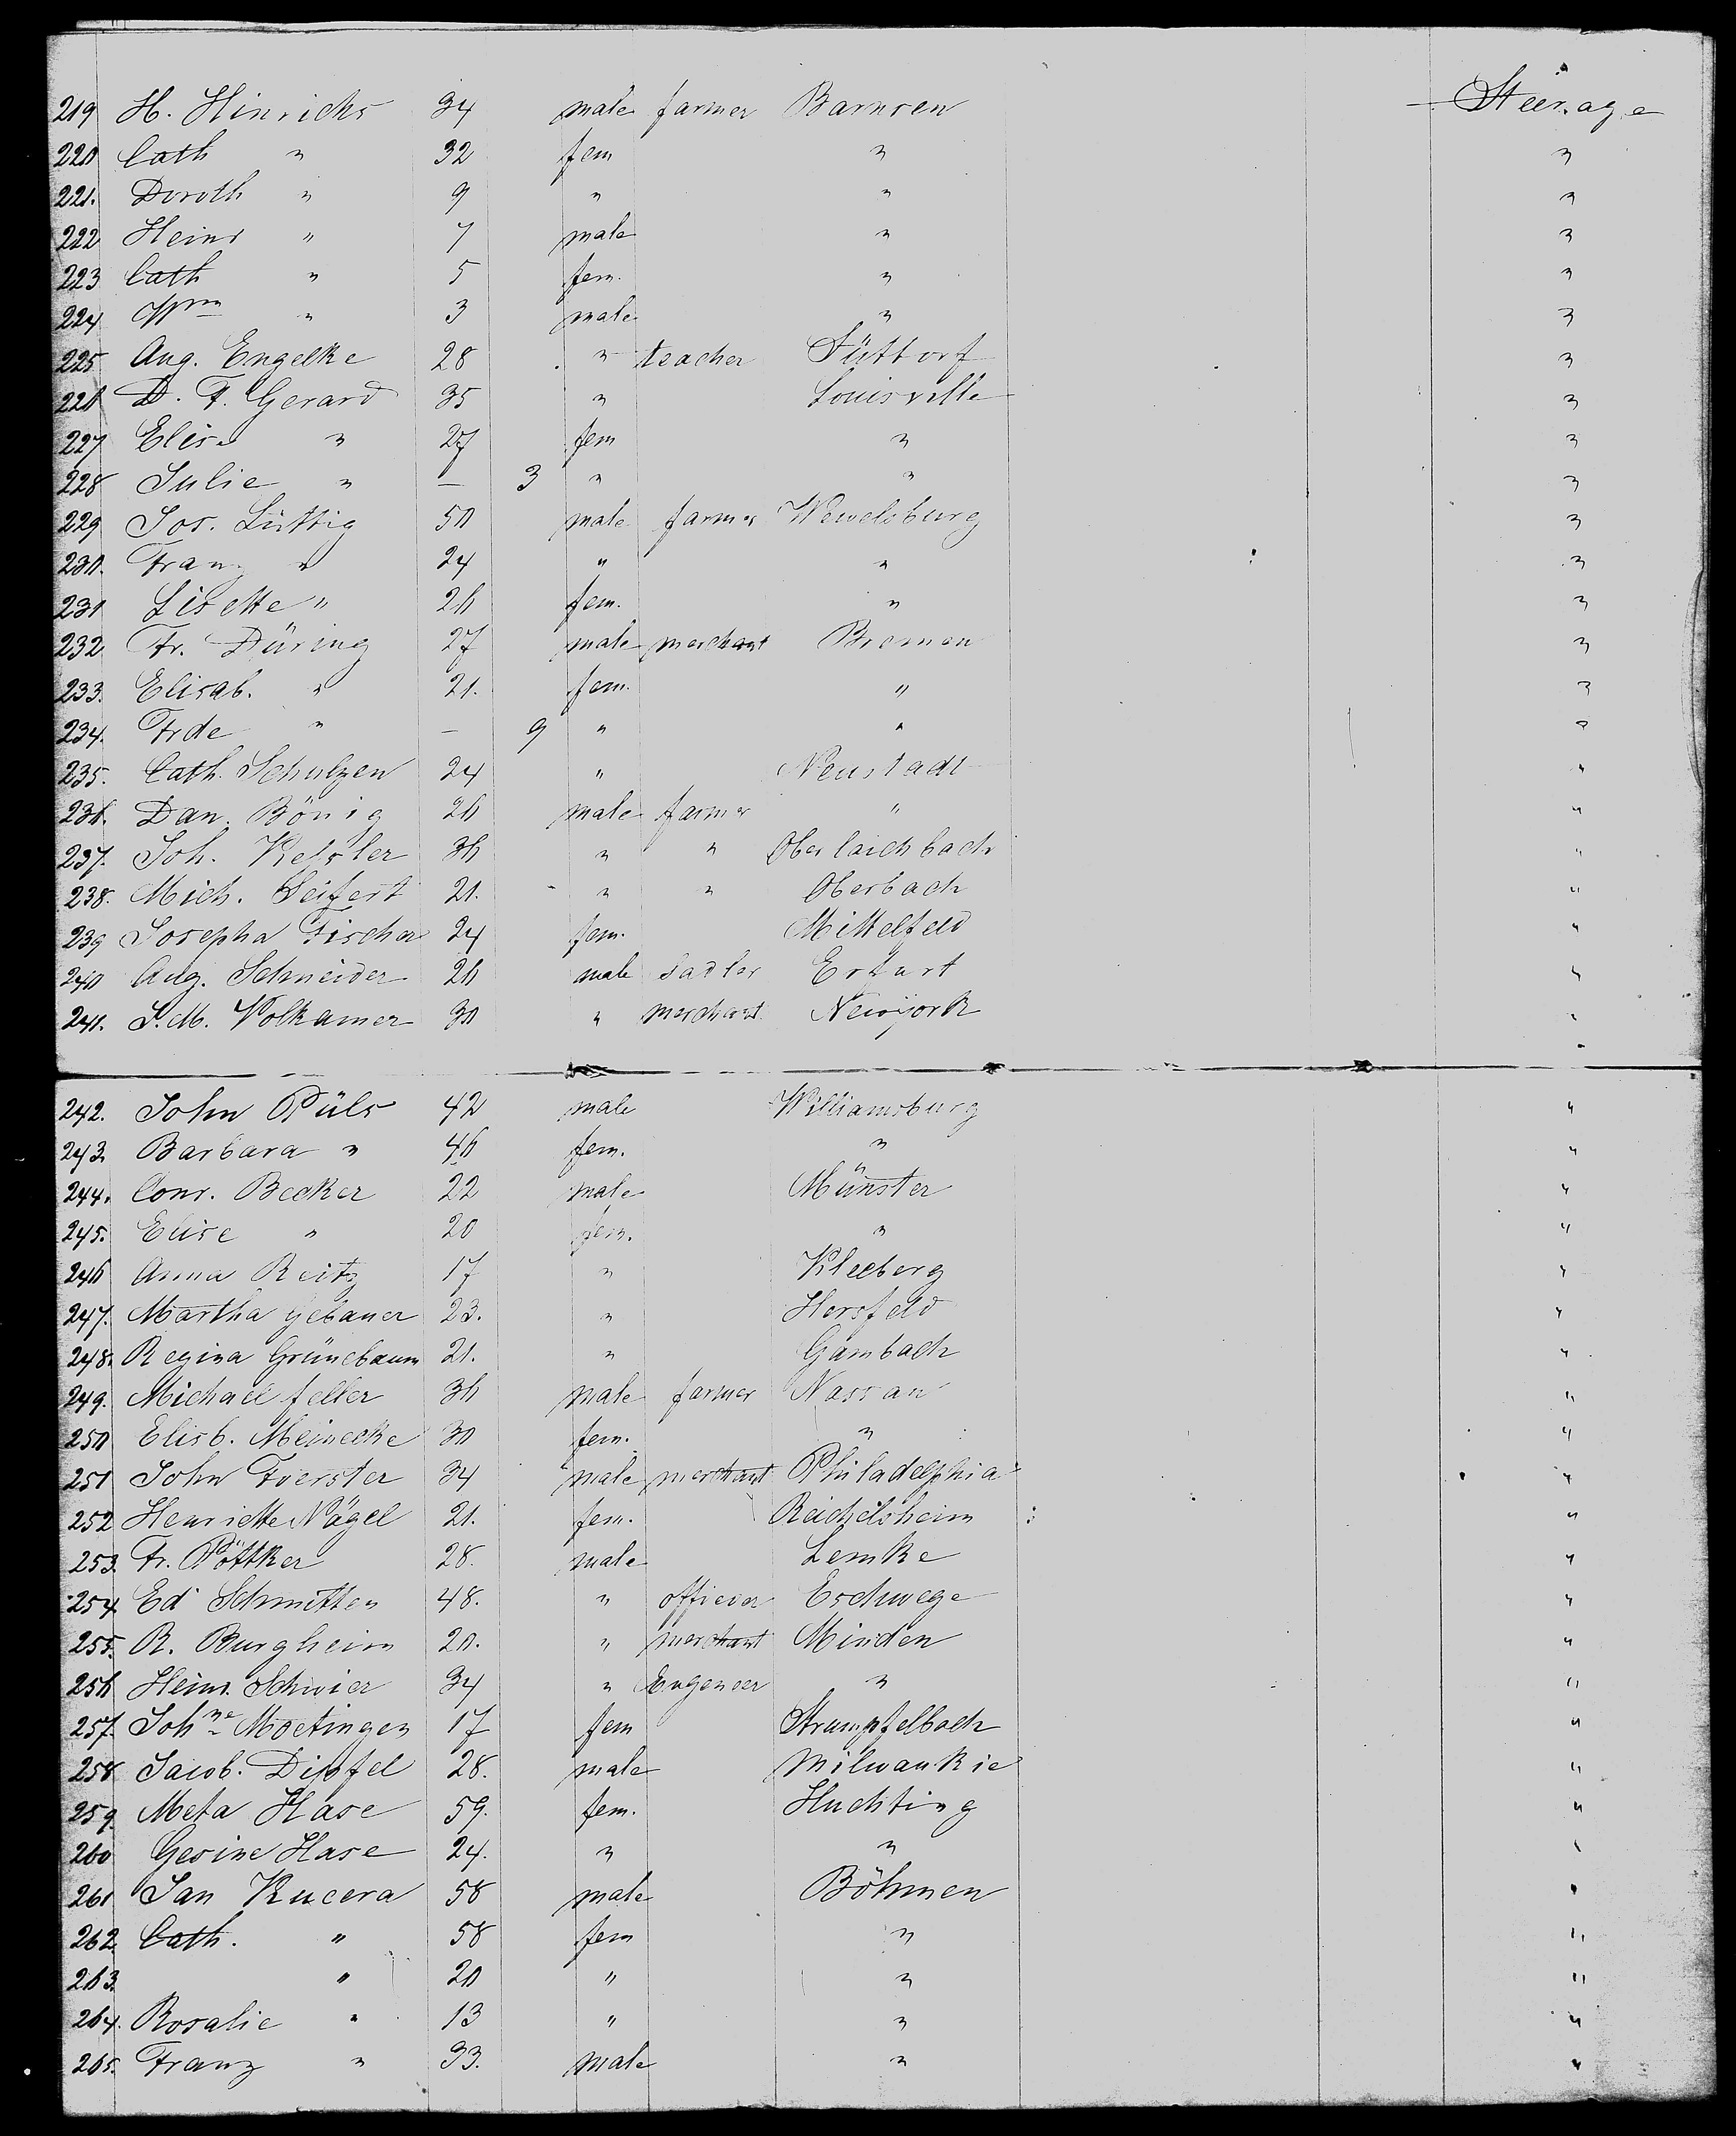 219 H. Hinrichs 34 male farmer Barnsen Steerage
220 Cath " 32 fem " "
221. Doroth " 9 " " "
222 Heinr " 7 male " "
223 Cath " 5 fem. " "
224 Wm " 3 male " "
225 Aug. Engelke 28 " teacher Süttorf "
226 D. F. Gerard 35 " Louisville "
227 Elise " 27 fem " "
228 Julie " — 3 " " "
229 Jos. Lüttig 50 male farmer Wewelsburg "
230. Franz " 24 " " "
231 Lisette " 26 fem. " "
232 Fr. Düring 27 male merchant Bremen "
233. Elisab. " 21. fem. " "
234. Frde " — 9 " " "
235. Cath. Schulzen 24 " Neustadt "
236. Dan. Bönig 26 male farmer " "
237. Joh. Kessler 36 " " Oberlaichbach "
238. Mich. Seifert 21. " " Oberbach "
239 Josepha Fischer 24 fem. Mittelfeld "
240 Aug. Schneider 26 male Sadler Erfurt "
241. J. M. Volkamer 30 " merchant Newyork "
242. John Püls 42 male Williamsburg "
243. Barbara " 46 fem. " "
244. Conr. Becker 22 male Münster "
245. Elise " 20 fem. " "
246 Anna Reitz 17 " Kleeberg "
247. Martha Gebauer 23. " Hersfeld "
248. Regina Grünebaum 21. " Gambach "
249. Michael Feller 36 male farmer Nassau "
250 Elisb. Meinecke 30 fem. " "
251 John Foerster 34 male merchant Philadelphia "
252 Henriette Nägel 21. fem. Reichelsheim "
253. Fr. Pöttker 28. male Lemke "
254 Ed Schmitten 48. " officer Eschwege "
255. R. Burgheim 20. " merchant Minden "
256 Heinr. Schwier 34 " Engeneer " "
257. Johne Moetinger 17 fem Strumpfelbach "
258 Jacob. Dipfel 28. male Milwaukie "
259. Meta Hase 59. fem. Huchting "
260 Gesine Hase 24. " " "
261 Jan Kucera 58 male Böhmen "
262. Cath. " 58 fem " "
263. " 20 " " "
264. Rosalie " 13 " " "
265. Franz " 33. male " "